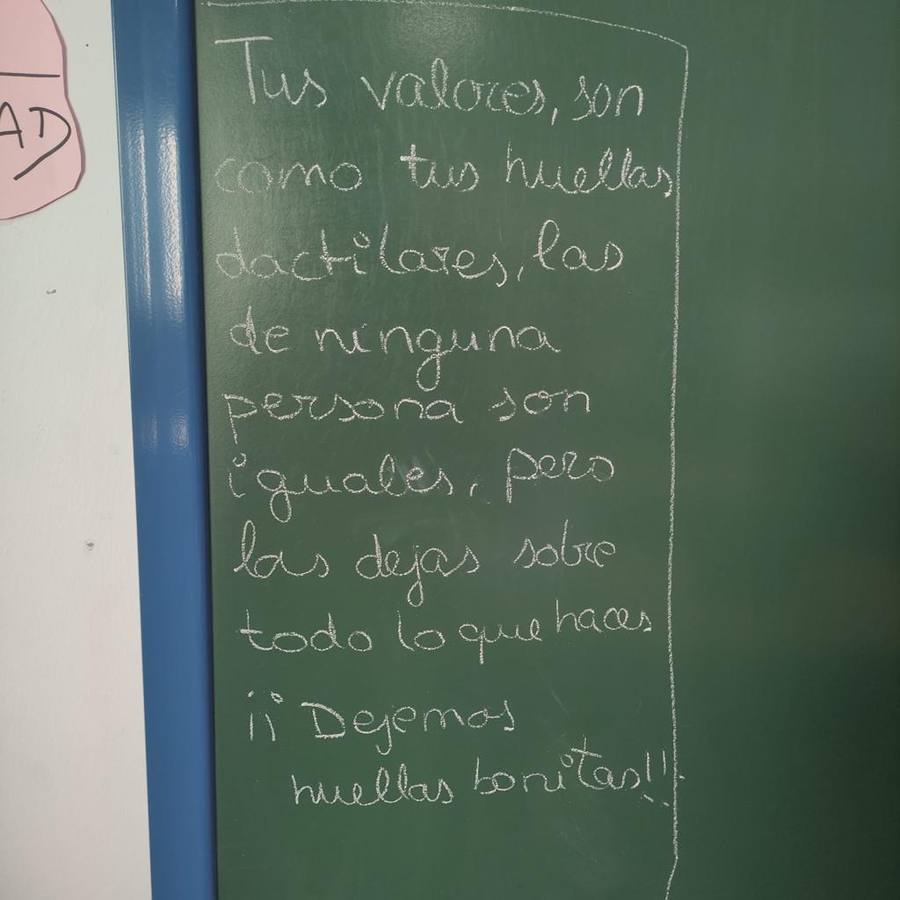 AD
Tus valores, son
como tus huellas
dactilares, las
de ninguna
persona son
iguales, pero
las dejas sobre
todo lo que haces
¡¡Dejemos
huellas bonitas!!